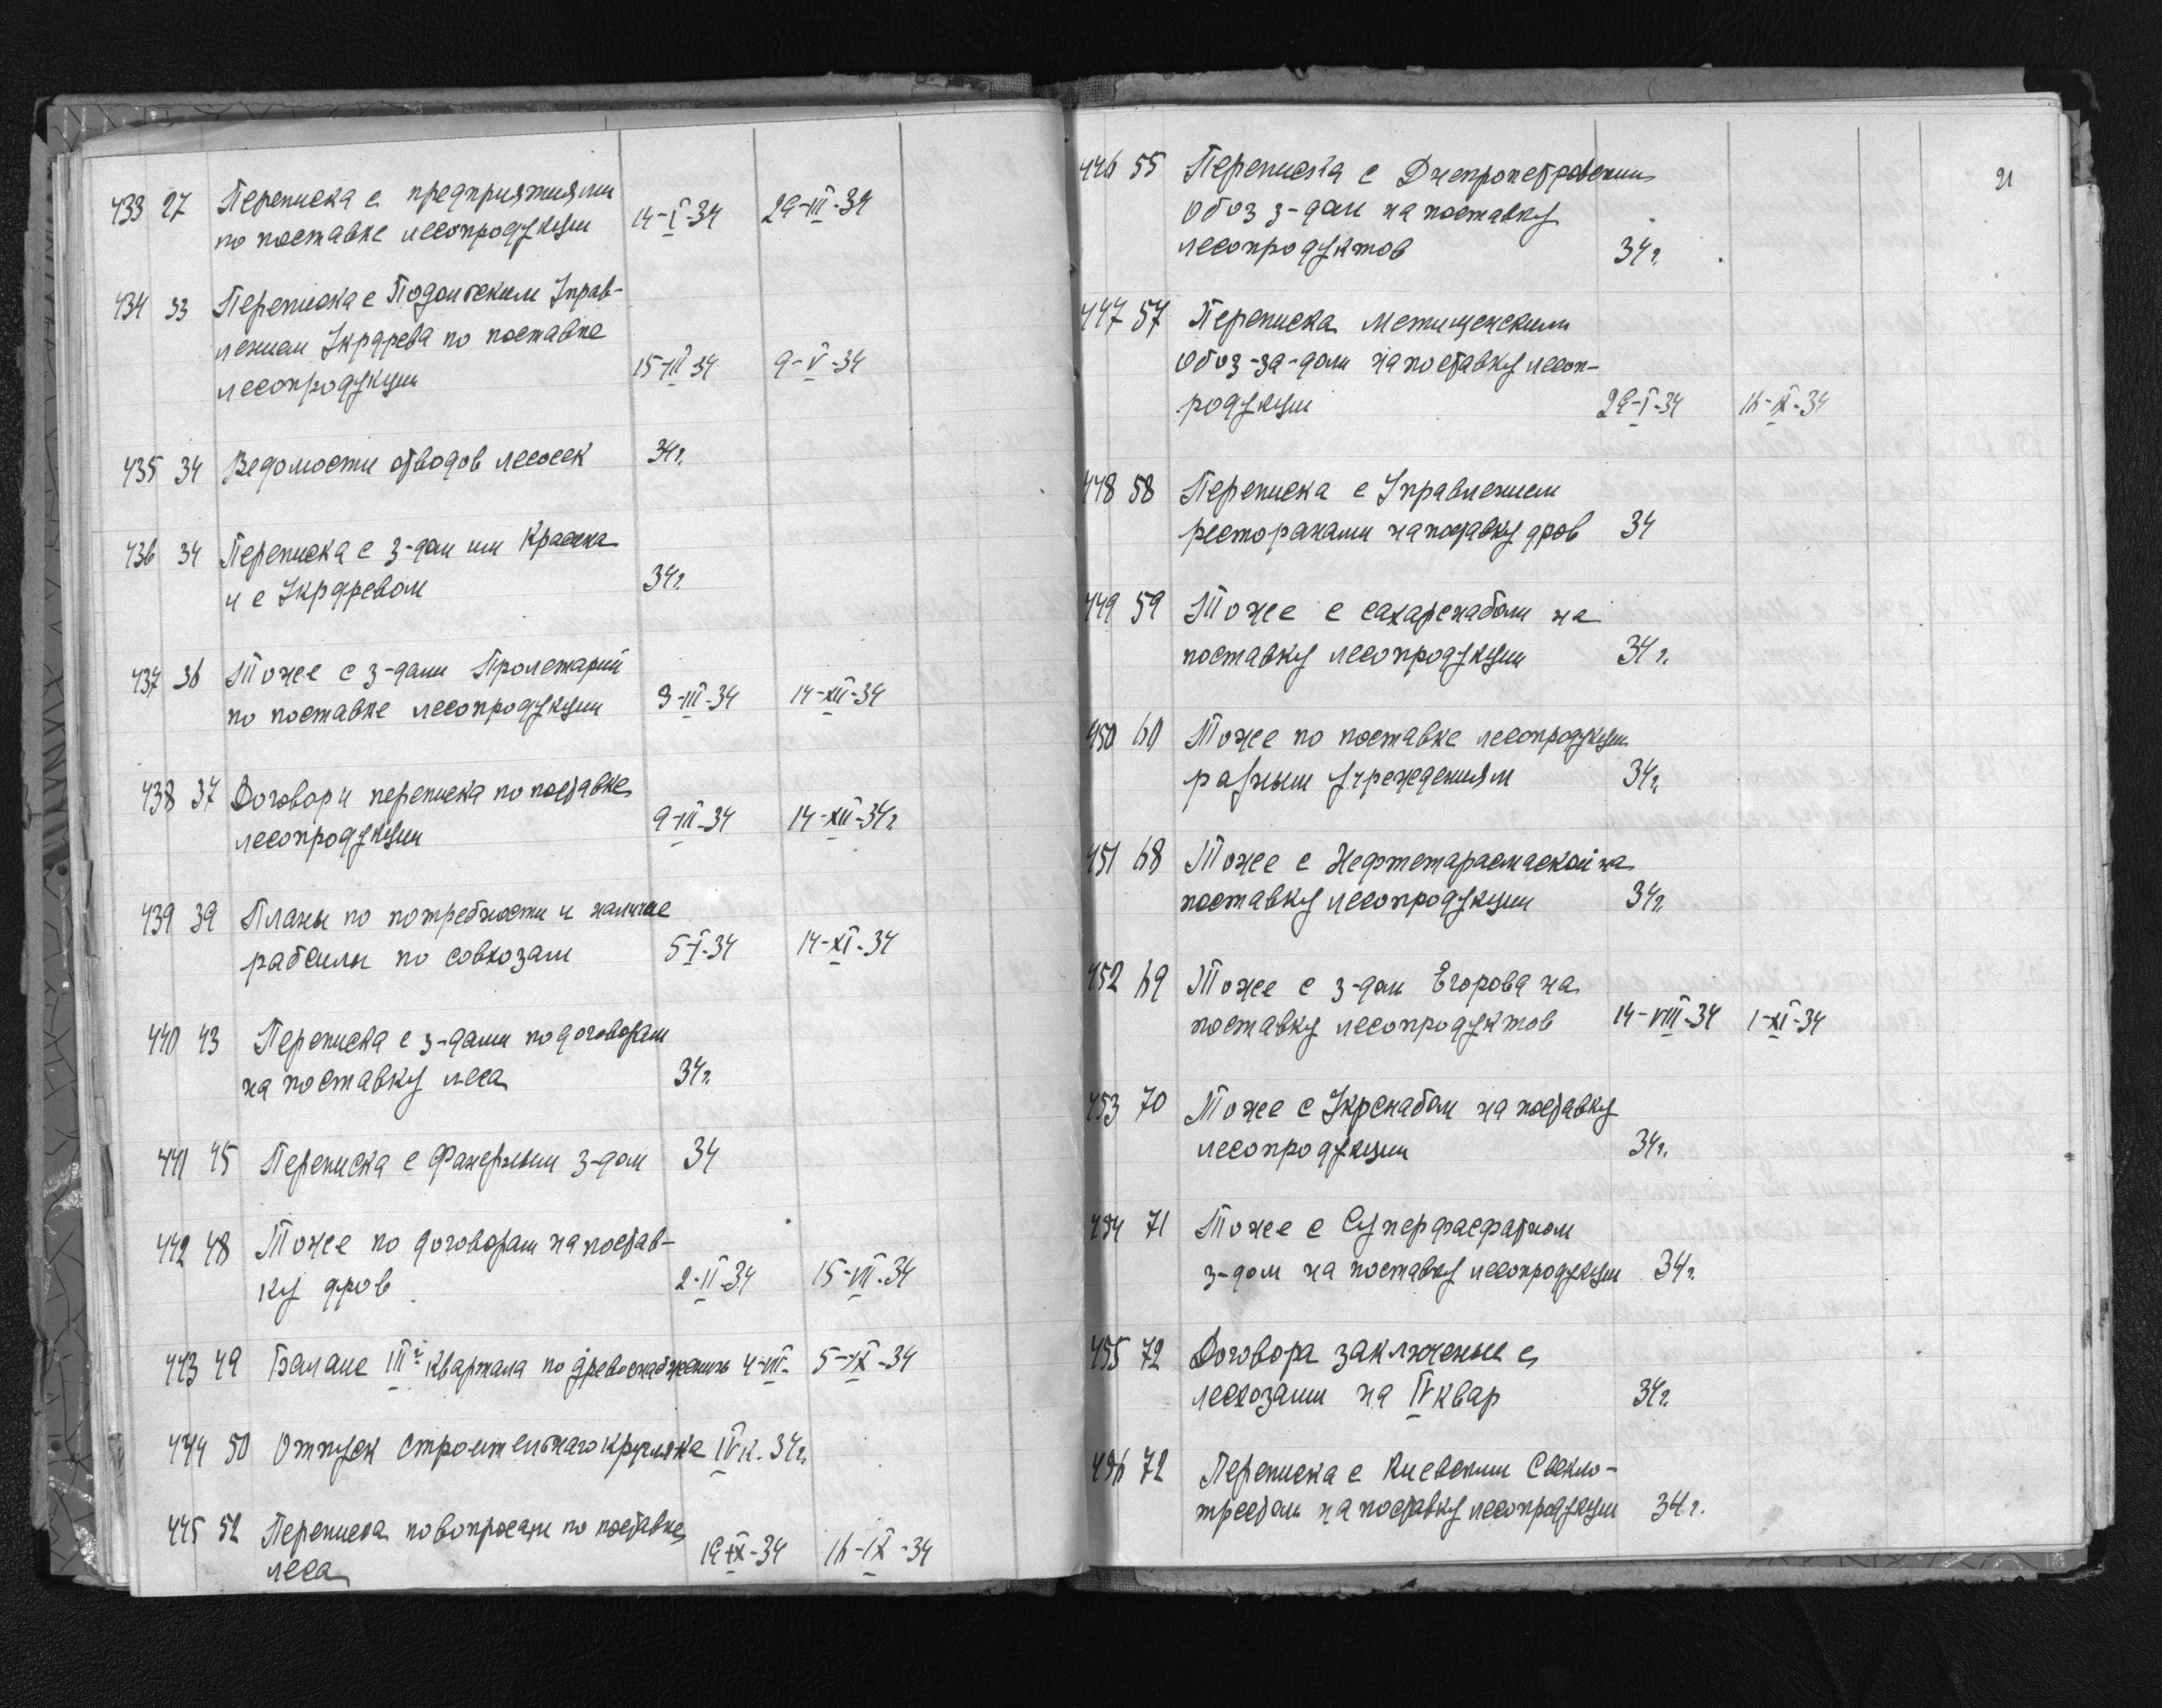 433 27 Переписка с предприятиями
по поставке лесопродукции 14-I-34 29-III-34
434 33 Переписка с Подольским Управ-
лением Укрдрева по поставке
лесопродукции 15-III-34 9-V-34
435 34 Ведомости отводов лесосек 34г.
436 34 Переписка с з-дом им Красина
и с Укрдревом 34г.
437 36 Тоже с з-дами Пролетарий
по поставке лесопродукции 3-III-34 14-XII-34
438 37 Договор и переписка по поставке
лесопродукции 9-III-34 14-XII-34г.
439 39 Планы по потребности и наличие
рабсилы по совхозам 5-I-34 14-XI-34
440 43 Переписка с з-дами по договорам
на поставку леса 34г.
441 45 Переписка с Фанерным з-дом 34
442 48 Тоже по договорам на постав-
ку дров 2-II-34 15-VII-34
443 49 Баланс III квартала по древоснабжению 4-VII- 5-IX-34
444 50 Отпуск строительного кругляка IVк. 34г.
445 52 Переписка по вопросам по поставке
леса 19-IX-34 16-IX-34
21
446 55 Переписка с Днепропетровским
Обоз з-дом на поставку
лесопродуктов 34г.
447 57 Переписка Метищенским
Обоз-за-дом на поставку лесоп-
родукции 29-I-34 16-IX-34
448 58 Переписка с Управлением
ресторанами на поставку дров 34
449 59 Тоже с сахарснабом на
поставку лесопродукции 34г.
450 60 Тоже по поставке лесопродукции
разным учреждениям 34г.
451 68 Тоже с на
поставку лесопродукции 34г.
452 69 Тоже с з-дом Егорова на
поставку лесопродуктов 14-VIII-34 1-XI-34
453 70 Тоже с Укрснабом на поставку
лесопродукции 34г.
454 71 Тоже с Суперфасфатном
з-дом на поставку лесопродукции 34г.
455 72 Договора заключеные с
лесхозами на IV квар 34г.
456 72 Переписка с Киевским Свекло-
трестом на поставку лесопродукции 34г.